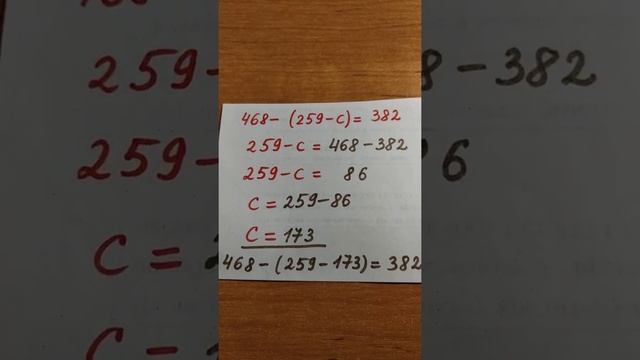 468 - (259 - c) = 382
259 - c = 468 - 382
259 - c = 86
c = 259 - 86
c = 173
468 - (259 - 173) = 382